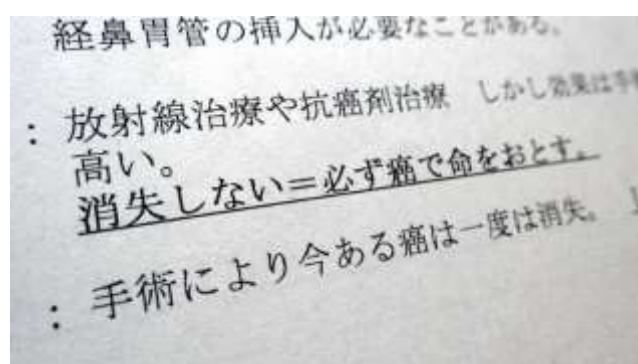 経鼻胃管の挿入が必要なことがある。
：放射線治療や抗癌剤治療　しかし効果は手
高い。
消失しない＝必ず癌で命をおとす。
：手術により今ある癌は一度は消失。